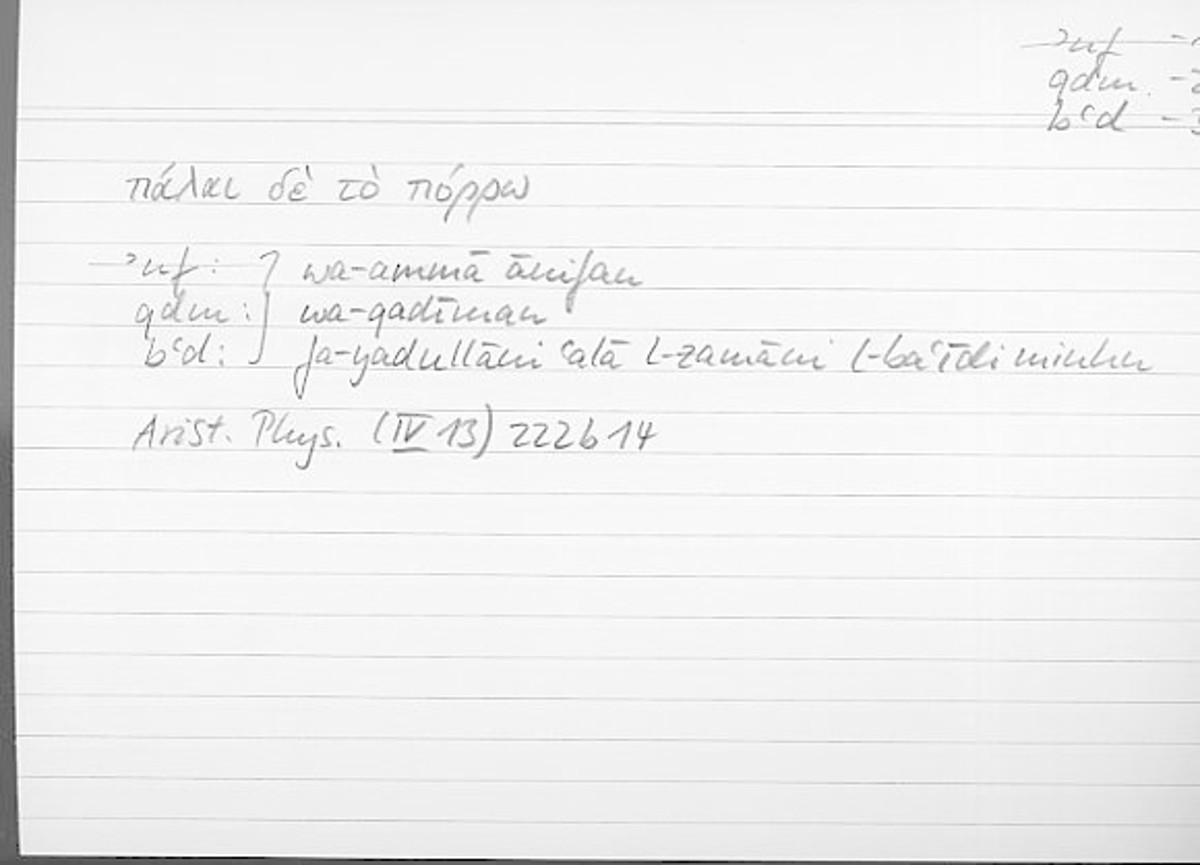 ʾnf -1
qdm. -2
bʿd -3
πάλαι δὲ τὸ πόρρω
ʾnf: } wa-ammā ānifan
qdm: wa-qadīman
bʿd: fa-yadullāni ʿalā l-zamāni l-baʿīdi minhu
Arist. Phys. (IV 13) 222b14